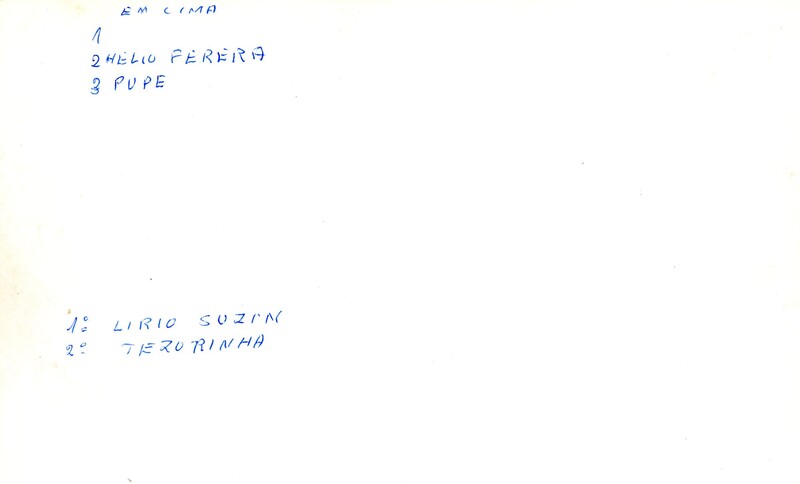 EM CIMA
1
2 HELIO FERERA
3 PUPE
1º LIRIO SUZIN
2º TEZURINHA